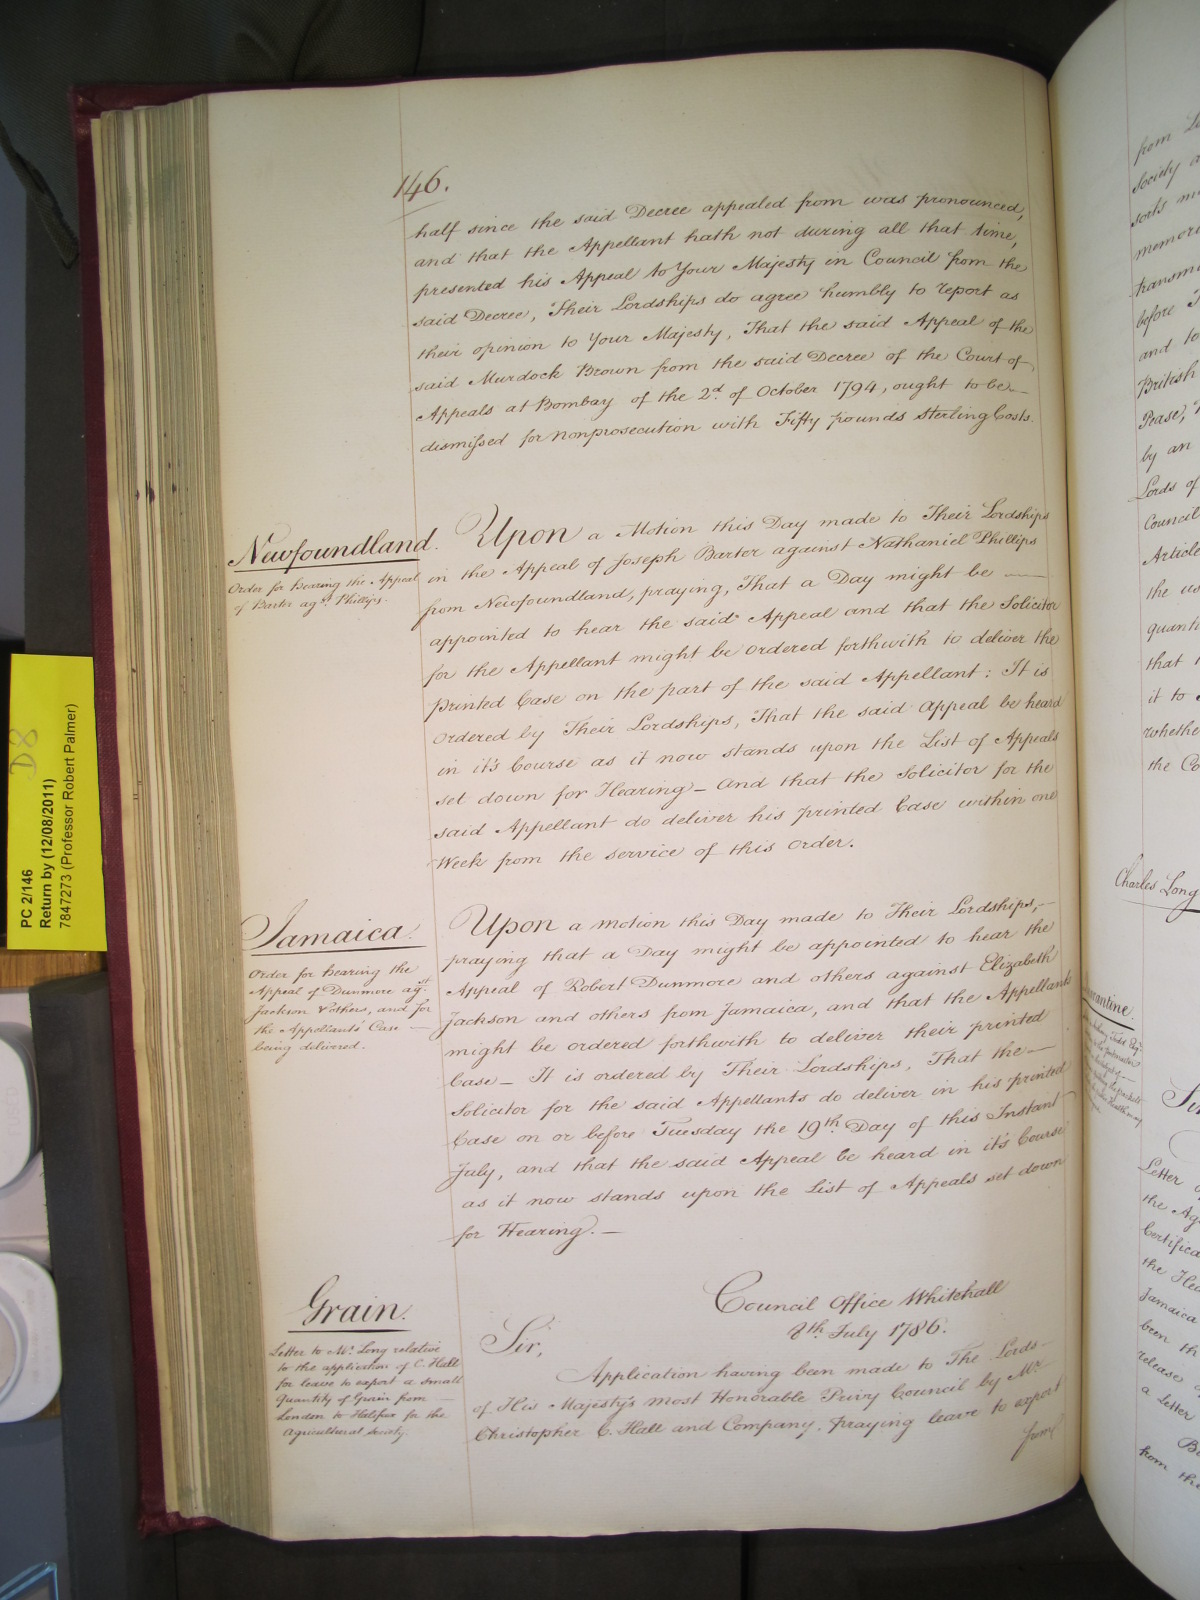 146.
half since the said Decree appealed from was pronounced,
and that the Appellant hath not during all that time,
presented his Appeal to Your Majesty in Council from the
said Decree, Their Lordships do agree humbly to report as
their opinion to Your Majesty, That the said Appeal of the
said Murdock Brown from the said Decree of the Court of
Appeals at Bombay of the 2d. of October 1794, ought to be
dismissed for nonprosecution with Fifty pounds sterling Costs.
Newfoundland.
Order for hearing the Appeal
of Barter agst. Phillips.
Upon a Motion this Day made to Their Lordships
in the Appeal of Joseph Barter against Nathaniel Phillips
from Newfoundland, praying, That a Day might be
appointed to hear the said Appeal and that the Solicitor
for the Appellant might be ordered forthwith to deliver the
printed Case on the part of the said Appellant: It is
ordered by Their Lordships, That the said Appeal be heard
in it's Course as it now stands upon the List of Appeals
set down for Hearing – And that the Solicitor for the
said Appellant do deliver his printed Case within one
Week from the service of this Order.
Jamaica.
Order for hearing the
Appeal of Dunmore agst.
Jackson & others, and for
the Appellants Case —
being delivered.
Upon a motion this Day made to Their Lordships, –
praying that a Day might be appointed to hear the
Appeal of Robert Dunmore and others against Elizabeth
Jackson and others from Jamaica, and that the Appellants
might be ordered forthwith to deliver their printed
Case – It is ordered by Their Lordships, That the –
Solicitor for the said Appellants do deliver in his printed
Case on or before Tuesday the 19th. Day of this Instant
July, and that the said Appeal be heard in it's Course
as it now stands upon the List of Appeals set down
for Hearing. –
Grain.
Letter to Mr. Long relative
to the application of C. Hall
for leave to export a small
Quantity of Grain from
London to Halifax for the
Agricultural Society.
Council Office Whitehall
8th. July 1786.
Sir,
Application having been made to The Lords
of His Majesty's most Honorable Privy Council by Mr
Christopher C. Hall and Company, praying leave to export
from
from
Society
memor
transm
before
and to
British
Pease,
by an
Lords of
Council
Article
the
quanti
that
it to
whethe
the Co
Charles Long
Letter
the Ag
Certifica
the Hea
Jamaica
been th
release
a Letter
from the
PC 2/146
Return by (12/08/2011)
7847273 (Professor Robert Palmer)
D8